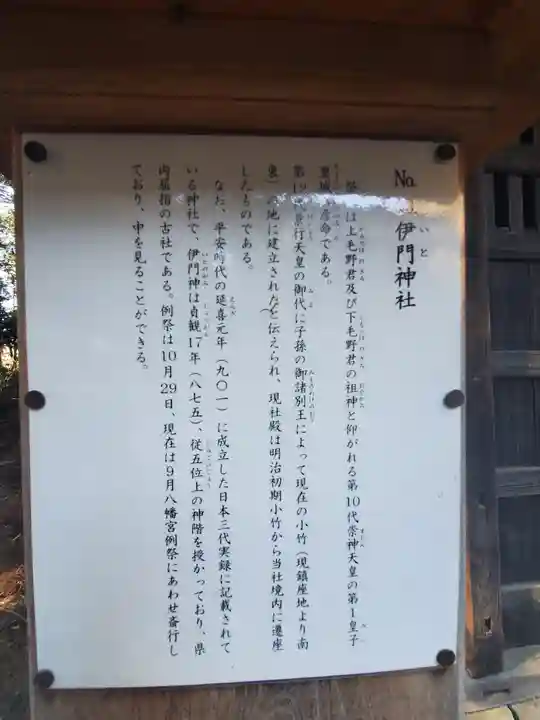 No. 伊門神社
いと
祭神は上毛野君及び下毛野君の祖神と仰がれる第10代崇神天皇の第1皇子
豊城入彦命である。
第12代景行天皇の御代に子孫の御諸別王によって現在の小竹（現鎮座地より南
東）の地に建立されたと伝えられ、現社殿は明治初期小竹から当社境内に遷座
したものである。
なお、平安時代の延喜元年（九〇一）に成立した日本三代実録に記載されて
いる神社で、伊門神は貞観17年（八七五）、従五位上の神階を授かっており、県
内屈指の古社である。例祭は10月29日、現在は9月八幡宮例祭にあわせ斎行し
ており、中を見ることができる。